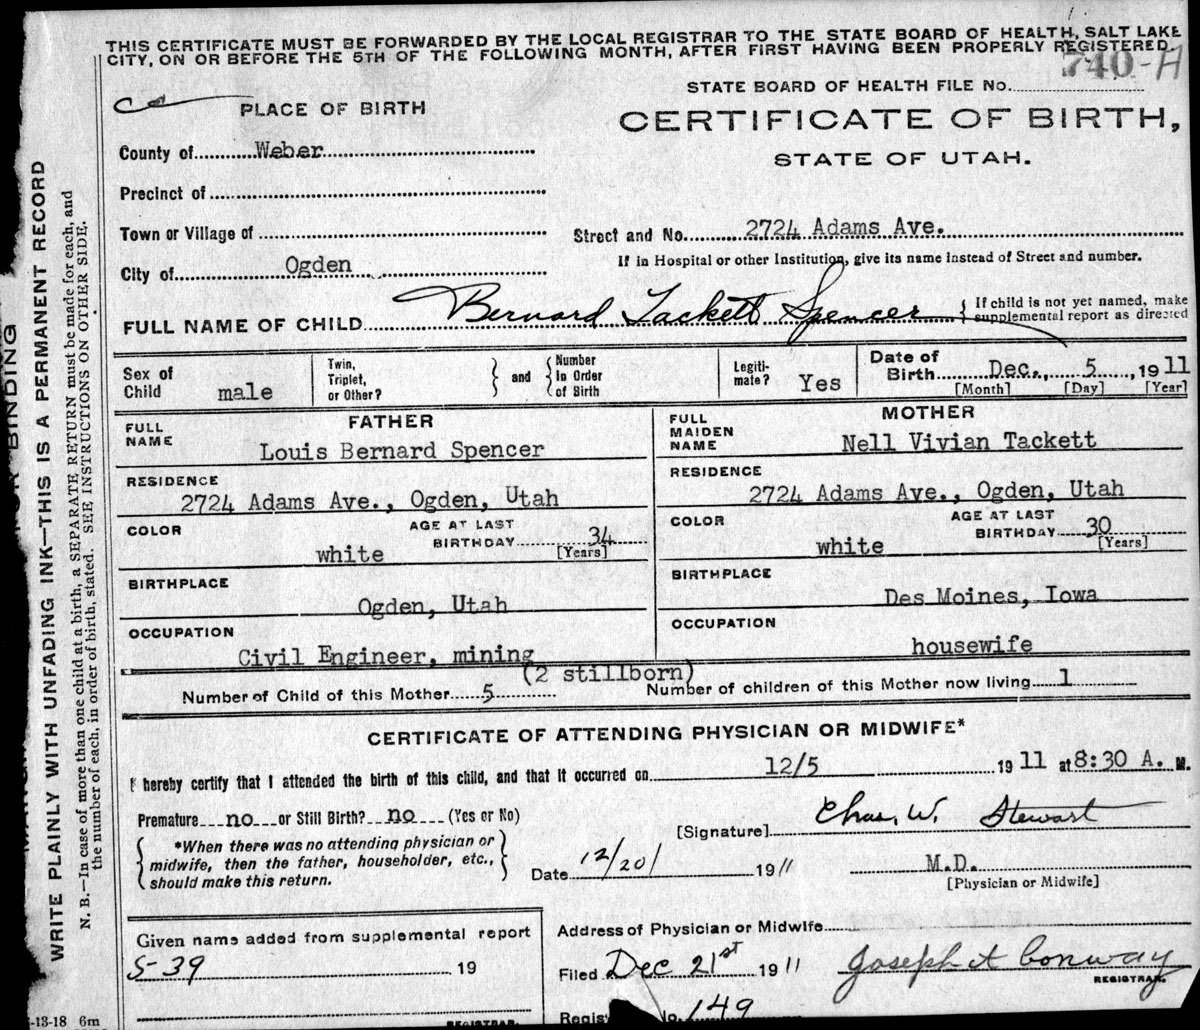 THIS CERTIFICATE MUST BE FORWARDED BY THE LOCAL REGISTRAR TO THE STATE BOARD OF HEALTH, SALT LAKE
CITY, ON OR BEFORE THE 5TH OF THE FOLLOWING MONTH, AFTER FIRST HAVING BEEN PROPERLY REGISTERED.
STATE BOARD OF HEALTH FILE No. 740-H
PLACE OF BIRTH
CERTIFICATE OF BIRTH,
STATE OF UTAH.
County of Weber
Precinct of
Town or Village of
Street and No. 2724 Adams Ave.
City of Ogden
If in Hospital or other Institution, give its name instead of Street and number.
FULL NAME OF CHILD Bernard Tackett Spencer { If child is not yet named, make
supplemental report as directed
Sex of Child male
Twin, Triplet, or Other? } and { Number In Order of Birth
Legiti-mate? Yes
Date of Birth Dec., 5, 1911
[Month] [Day] [Year]
FATHER
FULL NAME Louis Bernard Spencer
RESIDENCE
2724 Adams Ave., Ogden, Utah
COLOR white
AGE AT LAST BIRTHDAY 34 [Years]
BIRTHPLACE
Ogden, Utah
OCCUPATION
Civil Engineer, mining
MOTHER
FULL MAIDEN NAME Nell Vivian Tackett
RESIDENCE
2724 Adams Ave., Ogden, Utah
COLOR white
AGE AT LAST BIRTHDAY 30 [Years]
BIRTHPLACE
Des Moines, Iowa
OCCUPATION
housewife
(2 stillborn)
Number of Child of this Mother 5 Number of children of this Mother now living 1
CERTIFICATE OF ATTENDING PHYSICIAN OR MIDWIFE*
I hereby certify that I attended the birth of this child, and that it occurred on 12/5 1911 at 8:30 A. M.
Premature no or Still Birth? no (Yes or No)
[Signature] Chas. W. Stewart
{ *When there was no attending physician or
midwife, then the father, householder, etc.,
should make this return. }
Date 12/20/ 1911
M.D.
[Physician or Midwife]
Given name added from supplemental report
5-39 19
REGISTRAR.
Address of Physician or Midwife
Filed Dec 21st 1911 Joseph A Conway
REGISTRAR.
Regist No. 149
-13-18 6m
WRITE PLAINLY WITH UNFADING INK—THIS IS A PERMANENT RECORD
N. B.—In case of more than one child at a birth, a SEPARATE RETURN must be made for each, and
the number of each, in order of birth, stated. SEE INSTRUCTIONS ON OTHER SIDE.
BINDING